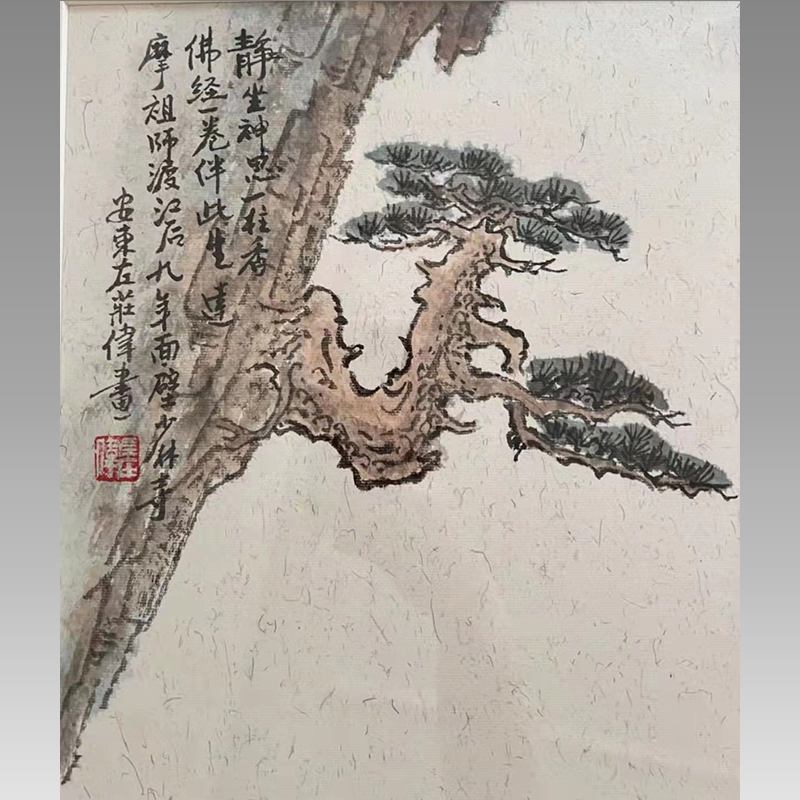 静坐神思一柱香
佛经一卷伴此生 达
摩祖师渡江后九年面壁少林寺
安東左莊偉畫